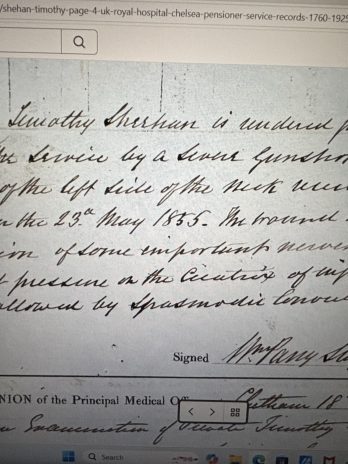 /shehan-timothy-page-4-uk-royal-hospital-chelsea-pensioner-service-records-1760-1925
Timothy Sherhan is rendered
the Service by a Severe Gunsho
of the left side of the neck
the 23rd May 1855. The wound
of some important nerve
pressure on the Cicatrix of
allowed by Spasmodic
Signed Wm Parry
NION of the Principal Medical Of
Chatham 18
Examination of Private Timothy
Search